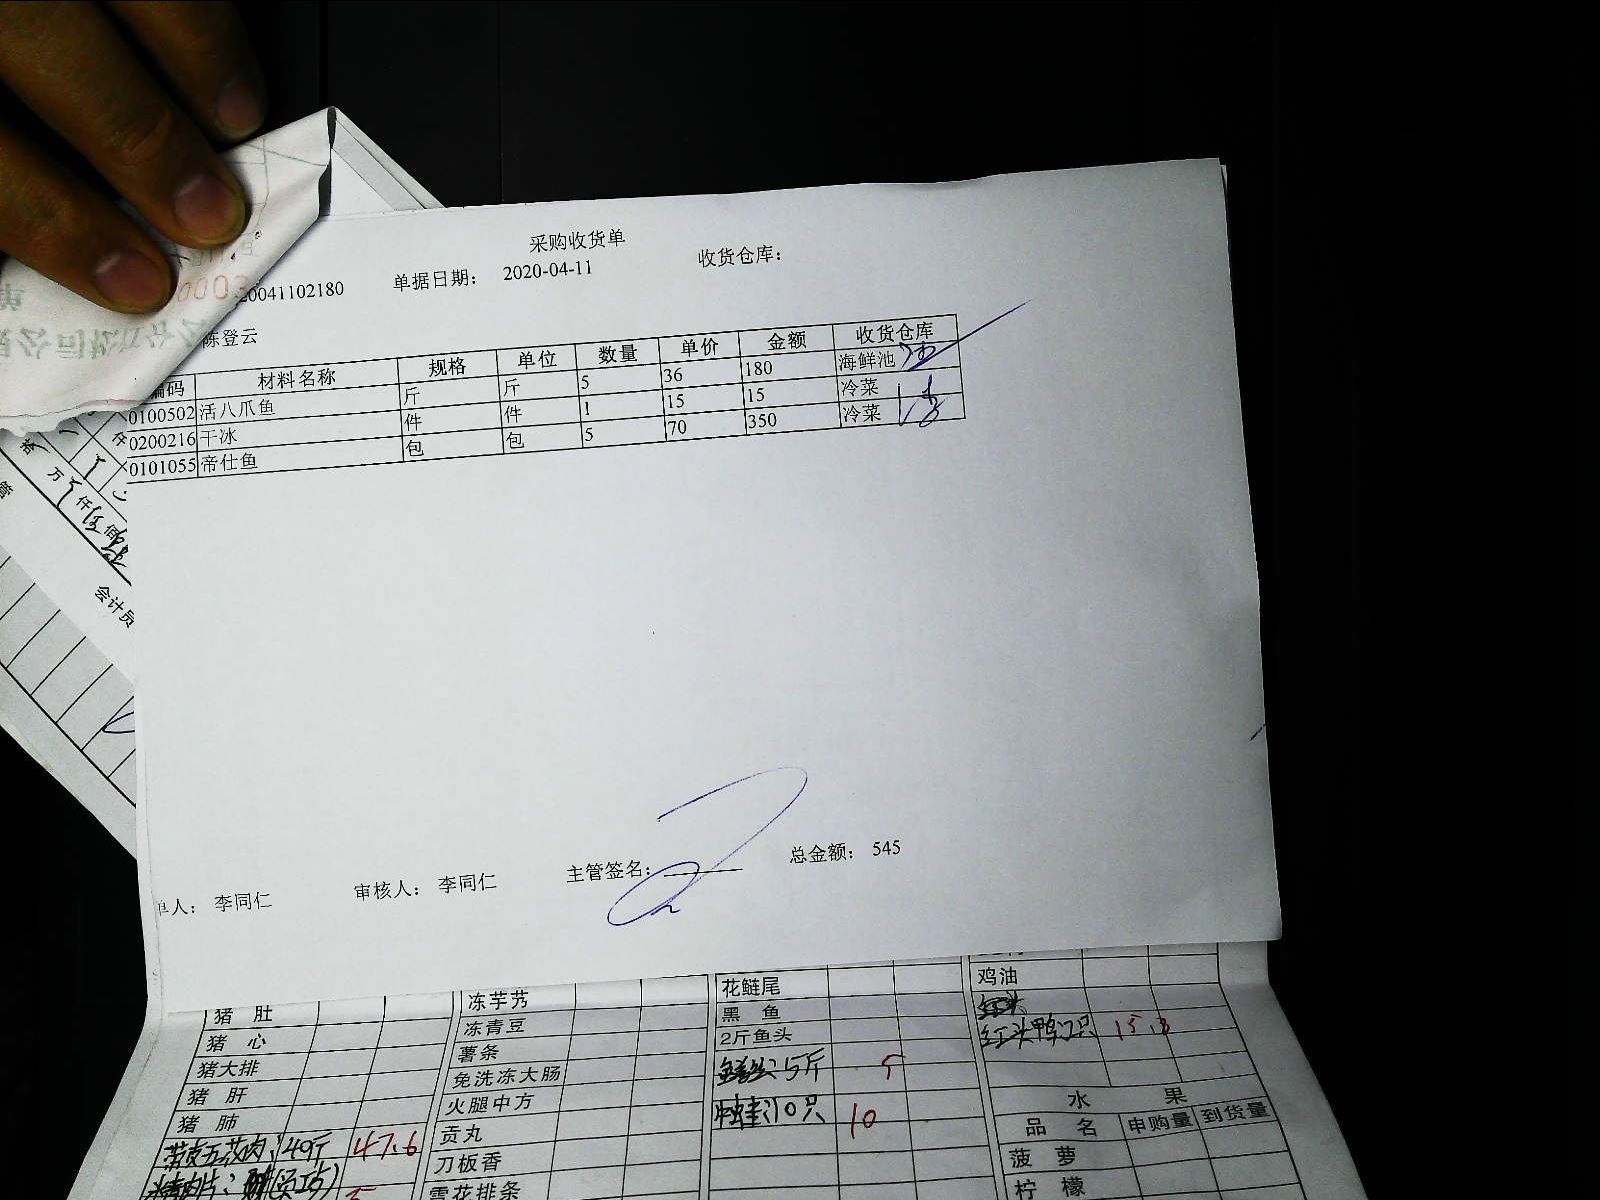 采购收货单
20041102180 单据日期： 2020-04-11 收货仓库：
陈登云
编码 材料名称 规格 单位 数量 单价 金额 收货仓库
0100502 活八爪鱼 斤 斤 5 36 180 海鲜池
0200216 干冰 件 件 1 15 15 冷菜
0101055 帝仕鱼 包 包 5 70 350 冷菜
万 仟 佰
会计员
单人： 李同仁 审核人： 李同仁 主管签名： 总金额： 545
猪肚 冻芋艿 花鲢尾 鸡油
猪心 冻青豆 黑鱼
猪大排 薯条 2斤鱼头 红头鸭12只 15.8
猪肝 免洗冻大肠 5斤 5
猪肺 火腿中方 10只 10 水果
带皮五花肉：40斤 47.6 贡丸 品名 申购量 到货量
刀板香 菠萝
雪花排条 柠檬